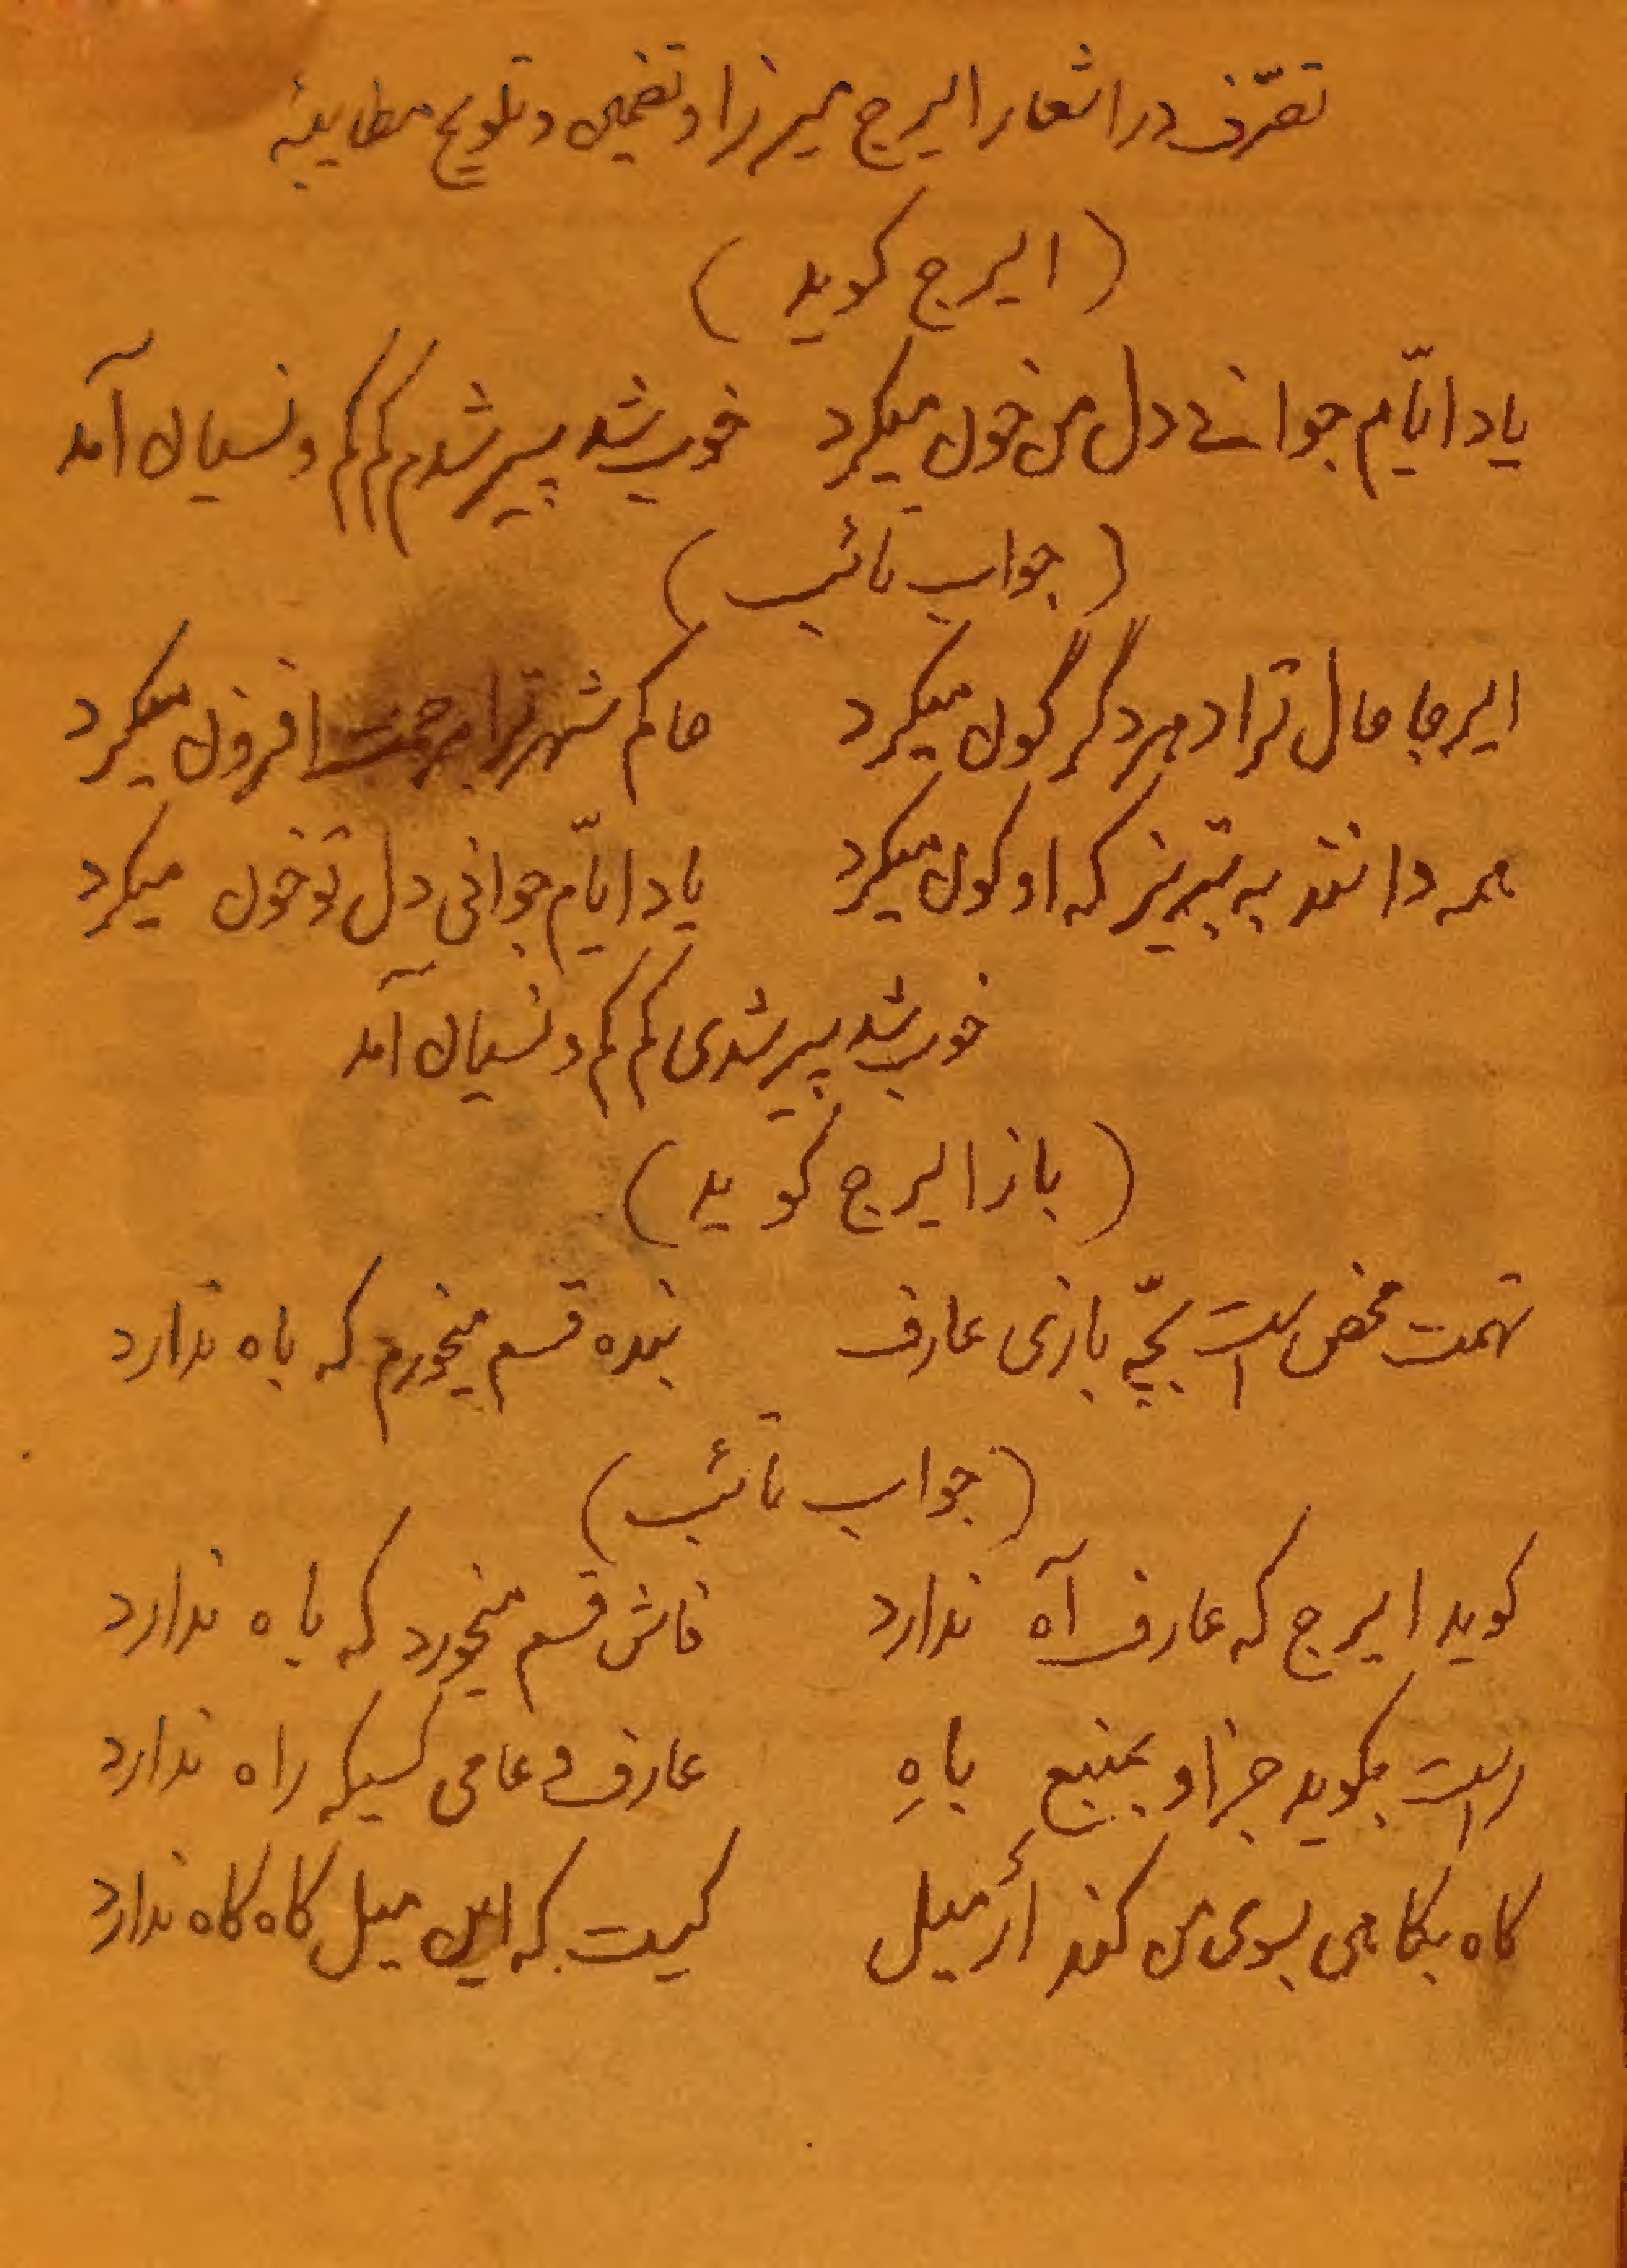 تصرّف در اشعار ایرج میرزا و تضمین و تلویح مطایبه
(ایرج کوید)
یاد ایّام جوانی دل من خون میکرد خوب شد پیر شدم کم کم و نسیان آمد
(جواب تائب)
ایرجا حال ترا دهر دگرگون میکرد حاکم شهر ترا مرحمت افزون میکرد
همه دانند به تبریز که او کون میکرد یاد ایّام جوانی دل تو خون میکرد
خوب شد پیر شدی کم کم و نسیان آمد
(باز ایرج کوید)
تهمت محض است بچّه بازی عارف بنده قسم میخورم که باه ندارد
(جواب تائب)
کوید ایرج که عارف آه ندارد فاش قسم میخورد که باه ندارد
راست بکوید جز او بمنبع باهِ عارف و عامی کسیکه راه ندارد
کاه بکاهی بسوی من کند ار میل کیست که این میل کاه کاه ندارد